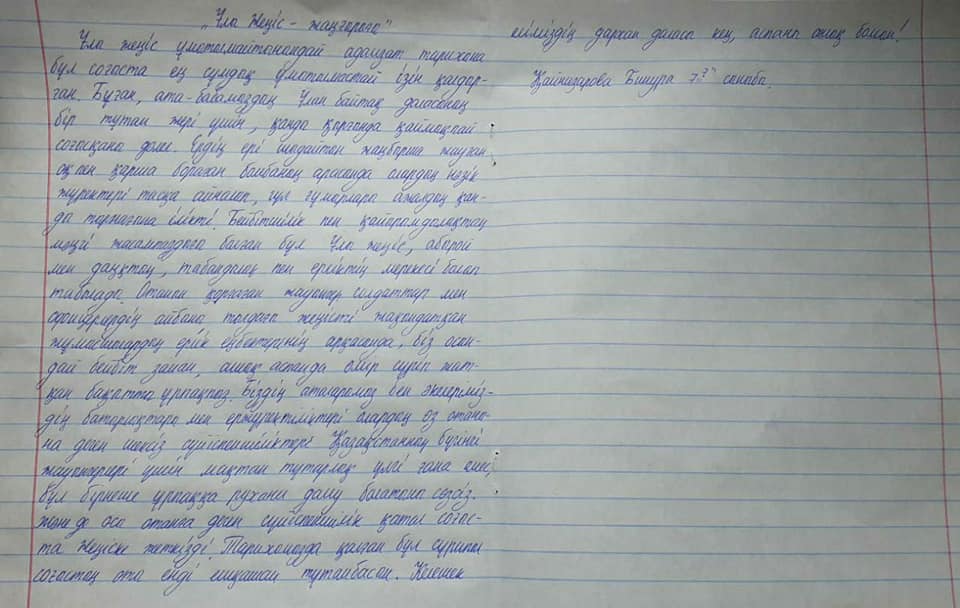 „Ұлы Жеңіс - жаңғырығы"
Ұлы жеңіс ұмытылмайтынындай адамзат тарихына
бұл соғыста ең сұмдық ұмытылмастай ізін қалдыр-
ған. Бұған, ата-бабамыздың Ұлан байтақ даласының
бір тұтам жері үшін, қанды қырғында қаймықпай
соғысқаны дәлел. Ердің ері шыдайтын жаңбырша жауған
оқ пен қарша бораған бомбаның арасында олардың нәзік
жүректері тасқа айналып, гүл ғұмырлары ажалдың қан-
ды тырнағына ілікті. Бейбітшілік пен қайырымдылықтың
мәңгі жасампаздығы болған бұл Ұлы жеңіс, абырой
мен даңқтың, табандылық пен ерліктің мерекесі болып
табылады. Отанын қорғаған жауынгер солдаттар мен
офицерлердің айбыны тылдағы жеңісті жақындатқан
жұмысшылардың ерлік еңбектерінің арқасында, біз осын-
дай бейбіт заман, ашық аспанда өмір сүріп жат-
қан бақытты ұрпақпыз. Біздің аталарымыз бен әкелеріміз-
дің батырлықтары мен ержүректіліктері олардың өз отаны-
на деген шексіз сүйіспеншіліктері Қазақстанның бүгінгі
жауынгерлері үшін мақтан тұтарлық үлгі ғана емес,
бұл бірнеше ұрпаққа рухани даму болатыны сөзсіз.
және де осы отанға деген сүйіспеншілік қатал соғыс-
та Жеңіске жеткізді. Тарихымызда қалған бұл сұрапыл
соғыстың оты енді ешқашан тұтанбасын. Келешек
еліміздің дархан даласы кең, аспаны ашық болсын!
Қайнизарова Бинұра 7 "" сыныбы.